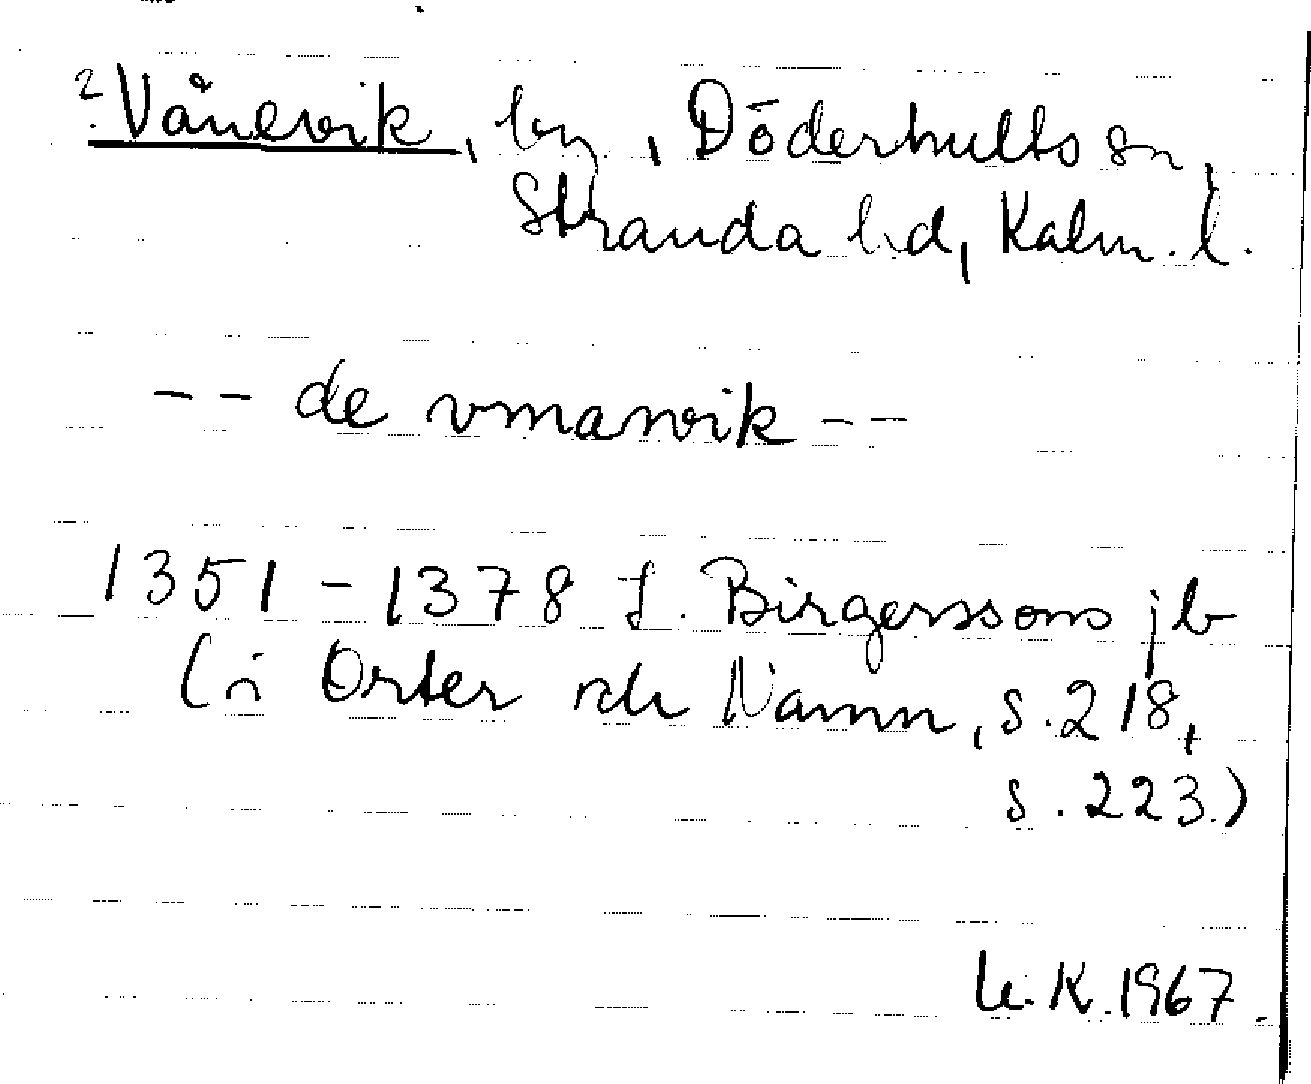 ? Vånevik, by, Döderhults sn,
Stranda hd, Kalm. l.
-- de vmanvik --
1351-1378 f. Birgerssons jb
(i Orter och Namn, s. 218,
s. 223.)
K. 1967.